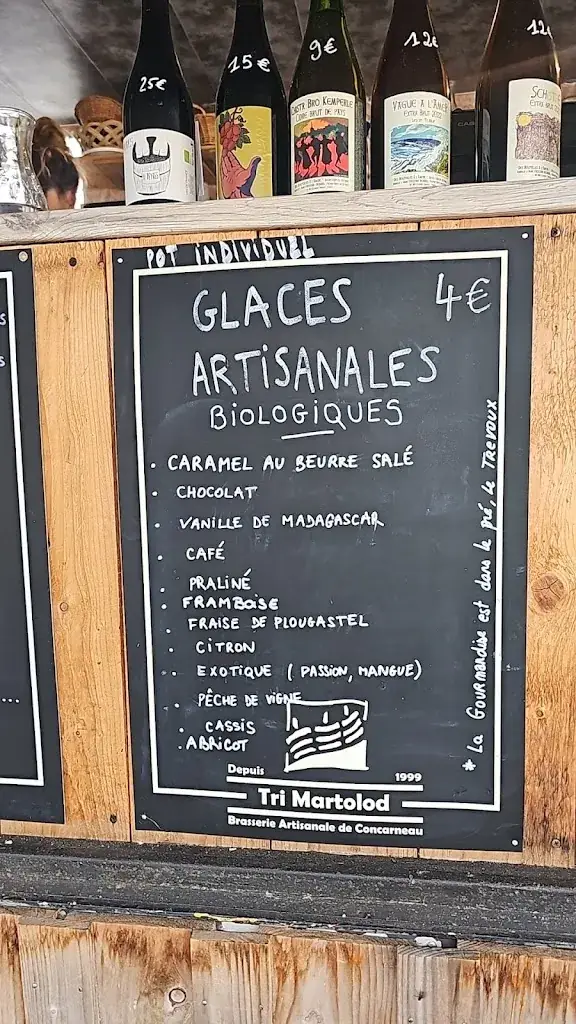 25€
15€
9€
12€
12€
BRO KEMPERLE
CIDRE BRUT DE PAYS
VAGUE A L'AME
EXTRA BRUT
EXTRA BRUT
POT INDIVIDUEL
GLACES 4€
ARTISANALES
BIOLOGIQUES
• CARAMEL AU BEURRE SALÉ
• CHOCOLAT
• VANILLE DE MADAGASCAR
• CAFÉ
• PRALINÉ
• FRAMBOISE
• FRAISE DE PLOUGASTEL
• CITRON
• EXOTIQUE (PASSION, MANGUE)
• PÊCHE DE VIGNE
• CASSIS
• ABRICOT
* La Gourmandise est dans le pré, Le TREVOUX
Depuis 1999
Tri Martolod
Brasserie Artisanale de Concarneau